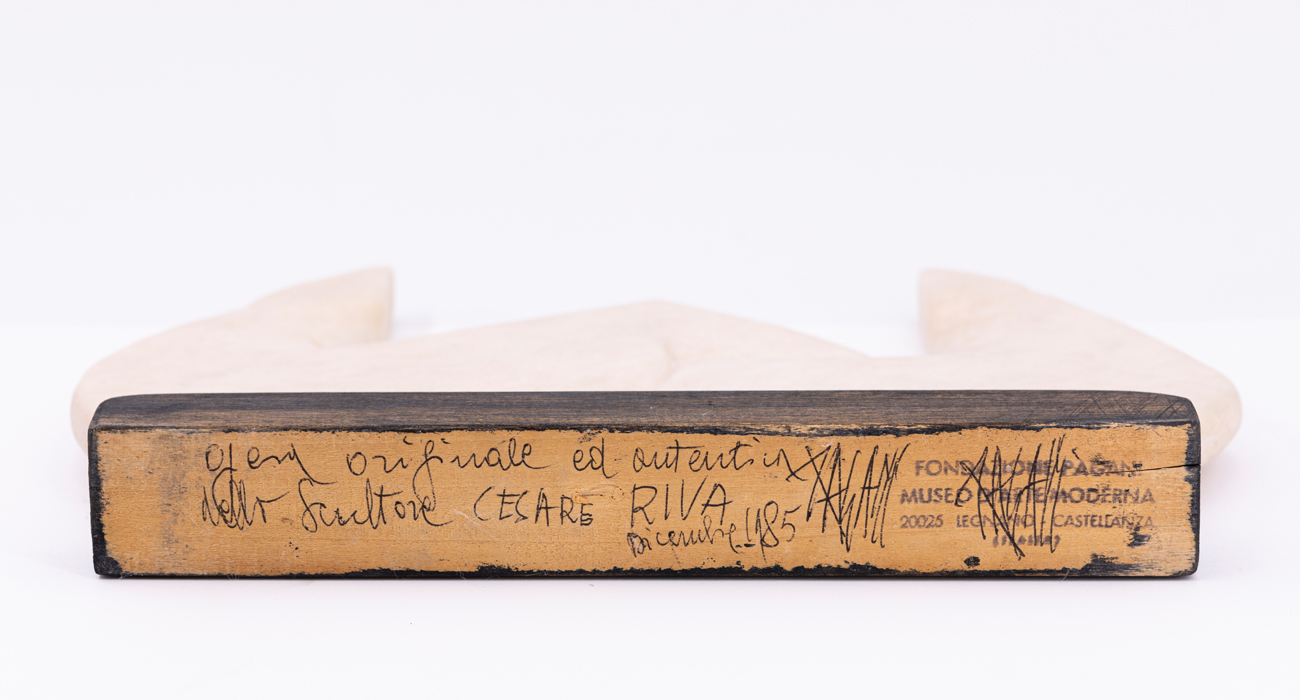 opera originale ed autentica
dello Scultore CESARE RIVA
Dicembre 1985
FONDAZIONE PAGANI
MUSEO D'ARTE MODERNA
20025 LEGNANO - CASTELLANZA